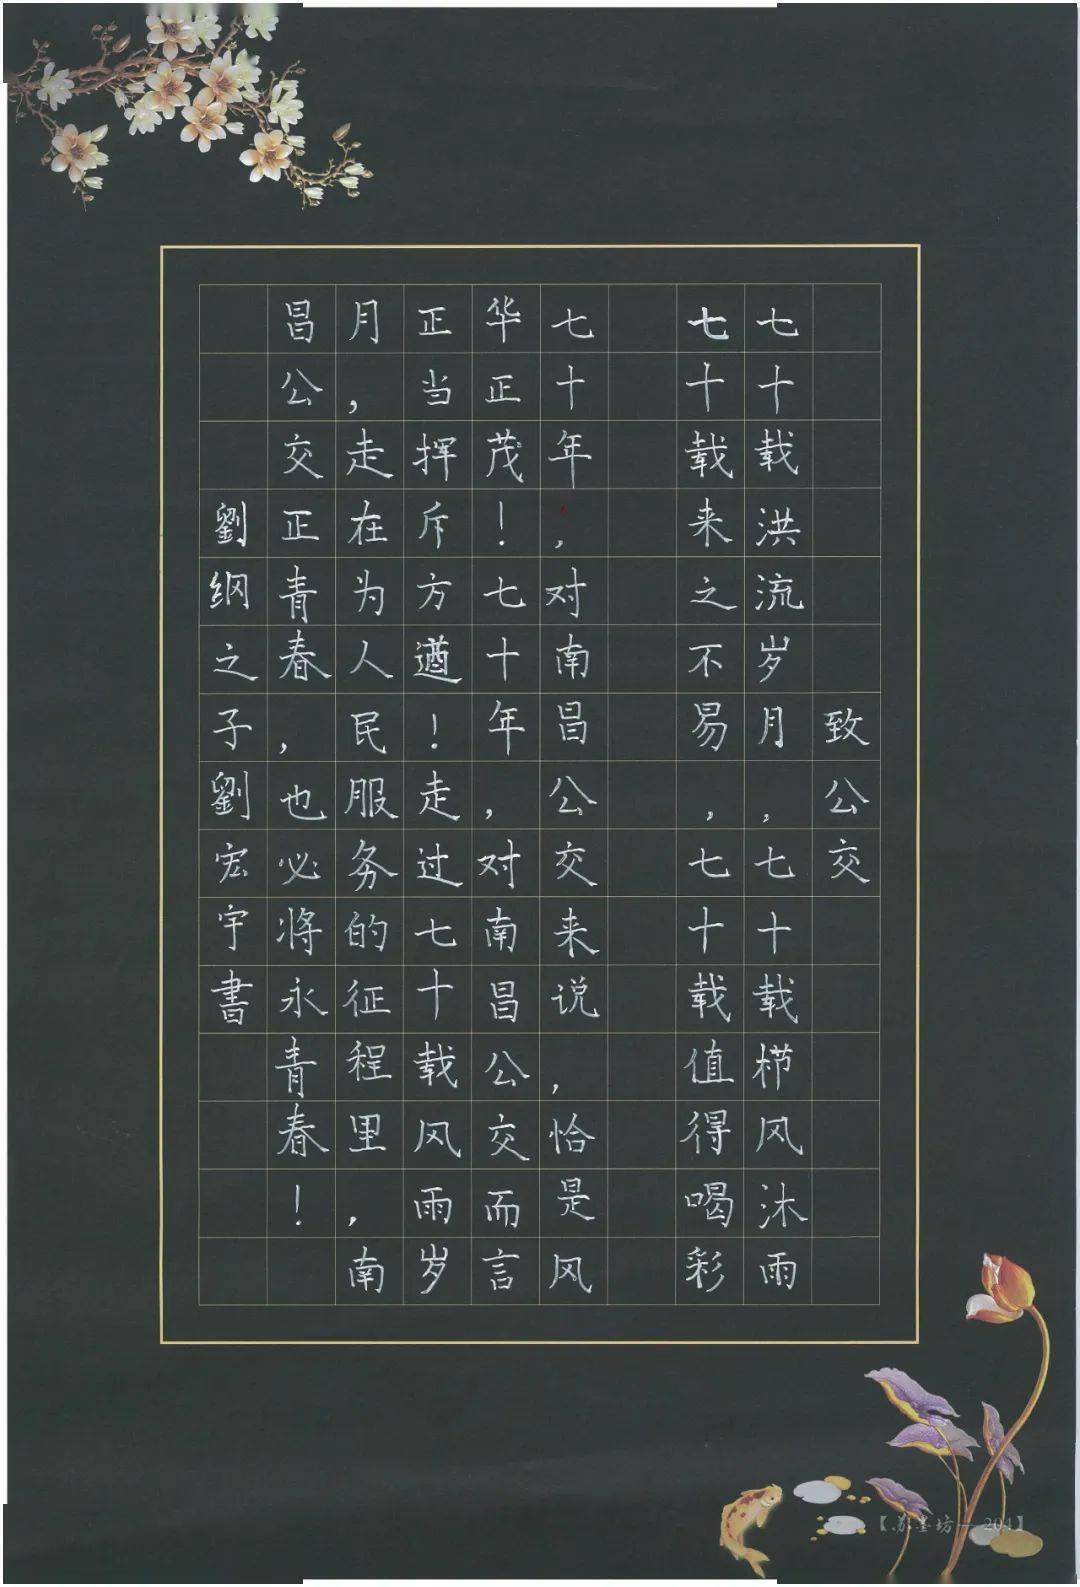 致公交
七十载洪流岁月，七十载栉风沐雨
七十载来之不易，七十载值得喝彩
七十年，对南昌公交来说，恰是风
华正茂！七十年，对南昌公交而言
正当挥斥方遒！走过七十载风雨岁
月，走在为人民服务的征程里，南
昌公交正青春，也必将永青春！
劉纲之子劉宏宇書
【苏墨坊—204】